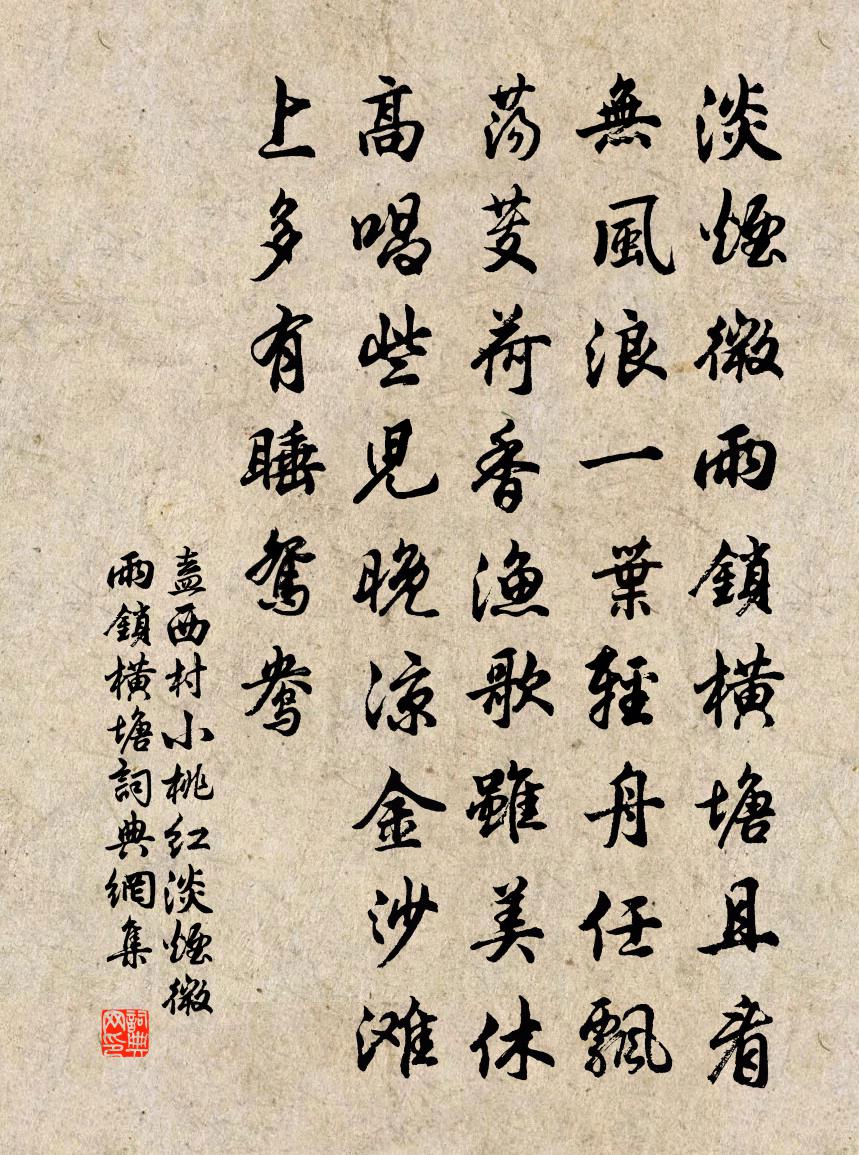 淡煙微雨鎖橫塘且看
無風浪一葉輕舟任飄
蕩芰荷香漁歌雖美休
高唱些兒晚涼金沙滩
上多有睡鴛鴦
盍西村小桃红淡煙微
雨鎖橫塘詞典網集
詞典网印